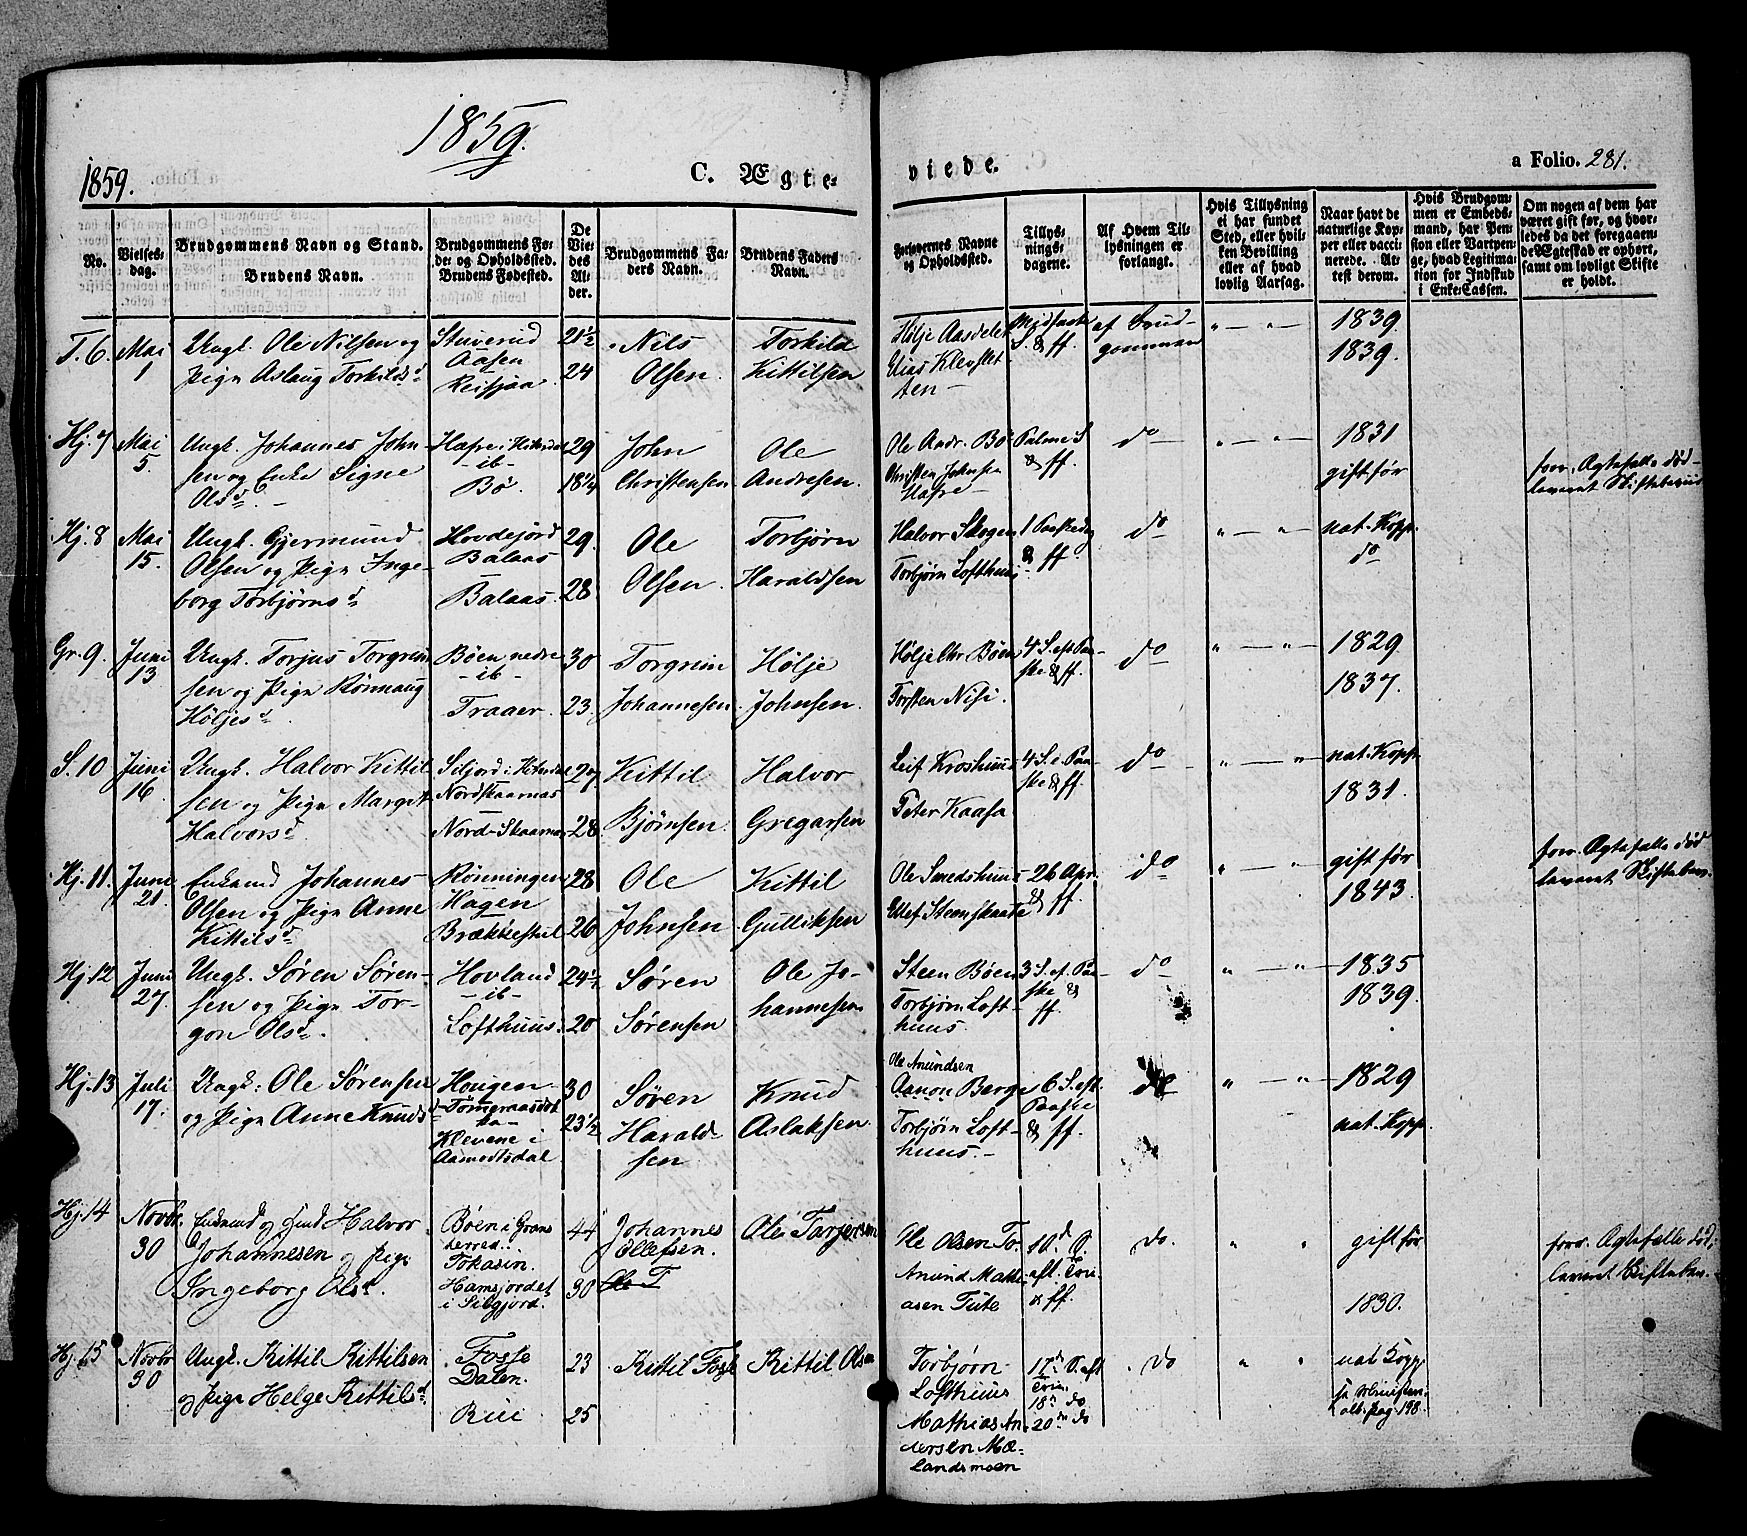 1859.
1859.
C. Ægte-
viede.
a Folio. 281.
No.
Vielses-
dag.
Brudgommens Navn og Stand.
Brudens Navn.
Brudgommens Fø-
de- og Opholdssted.
Brudens Fødested.
De
Vie-
des
Al-
der.
Brudgommens Fa-
ders Navn.
Brudens Faders
Navn.
Forlovernes Navne
og Opholdssted.
Tillys-
nings-
dagene.
Af Hvem Til-
lysningen er
forlangt.
Hvis Tillysning
ei har fundet
Sted, eller hvil-
ken Bevilling
eller af hvad
lovlig Aarsag.
Naar havt de
naturlige Kop-
per eller vacci-
nerede. At-
test derom.
Hvis Brudgom-
men er Embeds-
mand, har Pen-
sion eller Vartpen-
ge, hvad Legitima-
tion for Indskud
i Enke-Cassen.
Om nogen af dem har
været gift før, og hvor-
ledes da det foregaaen-
de Ægteskab er ophørt,
samt om lovligt Skifte
er holdt.
T. 6. Mai 1
Ungk. Ole Nilsen og
Pige Aslaug Torkilds d.
Stuverud
Aasen
Reisjaa
21½
24
Nils
Olsen.
Torkild
Kittilsen
Hølje Aasdelet
Klevslet
ten
S. & ff.
af Brud-
gommen
" — " —
1839.
1839.
Hj. 7 Mai 5.
Ungk. Johannes John-
sen og Enke Signe
Ols d.
Hafre i Hiterdal
ib
Bø.
29
18¼
John
Christensen
Ole
Andresen.
Ole Andr. Bø
Christen Johnsen
Hafre
Palme S
& ff.
do
" — " —
1831
gift før
forr. Ægtefælle død
leveret Skiftebeviis
Hj. 8 Mai 15.
Ungk. Gjermund
Olsen og Pige Inge-
borg Torbjørns d.
Hovdejord
Balaas
Balaas.
29.
28.
Ole
Olsen.
Torbjørn
Haraldsen
Halvor Skogen
Torbjørn Lofthuus
1 Paaskedag
& ff.
do
" — " —
nat. Kopp.
do
Gr. 9. Juni 13
Ungk. Torjus Torgrim
sen og Pige Rønnaug
Høljes d.
Bøen nedre
ib
Traaer.
30
23.
Torgrim
Johannesen
Hølje
Johnsen.
Hølje Chr. Bøen
Torsten Nisi.
4 S. eft Paa-
ske & ff.
do
" — " —
1829
1837.
S. 10 Juni 16.
Ungk. Halvor Kittil
sen og Pige Margit
Halvors d.
Siljord i Hiterdal
Nordskaarnas
Nord-Skaarnas
27.
28
Kittil
Bjørnsen.
Halvor
Gregarsen
Leif Kroshuus
Peter Kaasa
4 S. e. Paa-
ske & ff.
do
" — " —
nat. Kopp.
1831.
Hj. 11. Juni 21.
Enkemd Johannes
Olsen og Pige Anne
Kittils d.
Rønningen
Hagen
Brækkestul
28
26
Ole
Johnsen
Kittil
Gulliksen
Ole Smedshuus
Ellef Steenskaate
26 Apr.
& ff.
do
" — " —
gift før
1843.
forr. Ægtefælle død
leveret Skiftebev.
Hj. 12 Juni 27.
Ungk. Søren Søren-
sen og Pige Tor-
gon Ols d.
Hovland
ib
Lofthuus.
24½
20
Søren
Sørensen
Ole Jo-
hannesen
Steen Bøen
Torbjørn Loft-
huus.
3 S. ef. Paa-
ske &
ff.
do
" — " —
1835
1839.
Hj. 13 Juli 17.
Ungk: Ole Sørensen
og Pige Anne Knuds d
Hougen
Klevene i
Aamodtsdal
30
23½
Søren
Harald-
sen
Knud
Aslaksen.
Ole Amundsen
Aanon Berge
Torbjørn Loft-
huus.
6 S. eft.
Paaske
& ff.
do
" — " —
1829
nat. Kopp.
Hj. 14 Novbr. 30
Enkemd og Halvor
Johannesen og Pige
Ingeborg Ols d.
Bøen i Grans
herred.
Tokasin.
Hamsjordet
i Siligjord.
44
30
Johannes
Ellefsen.
Ole T
Ole Tarjersen
Ole Olsen To.
Amund Mathi-
asen Tute
10d S.
eft. Tri.
& ff.
do.
" "
gift før
1830.
forr. Ægtefælle død,
leveret Skiftebev.
Hj. 15 Novbr 30
Ungk. Kittil Kittilsen
og Pige Helge Kittils d.
Fosse
Dalen.
Rue
23
25
Kittil Fosse
Kittil Olsen
Torbjørn
Lofthuus
Mathias An-
dersen Mæ-
landsmoen
17d S. eft
Trin.
18d do
20de do
do
" "
nat Kopp.
pag. 198.